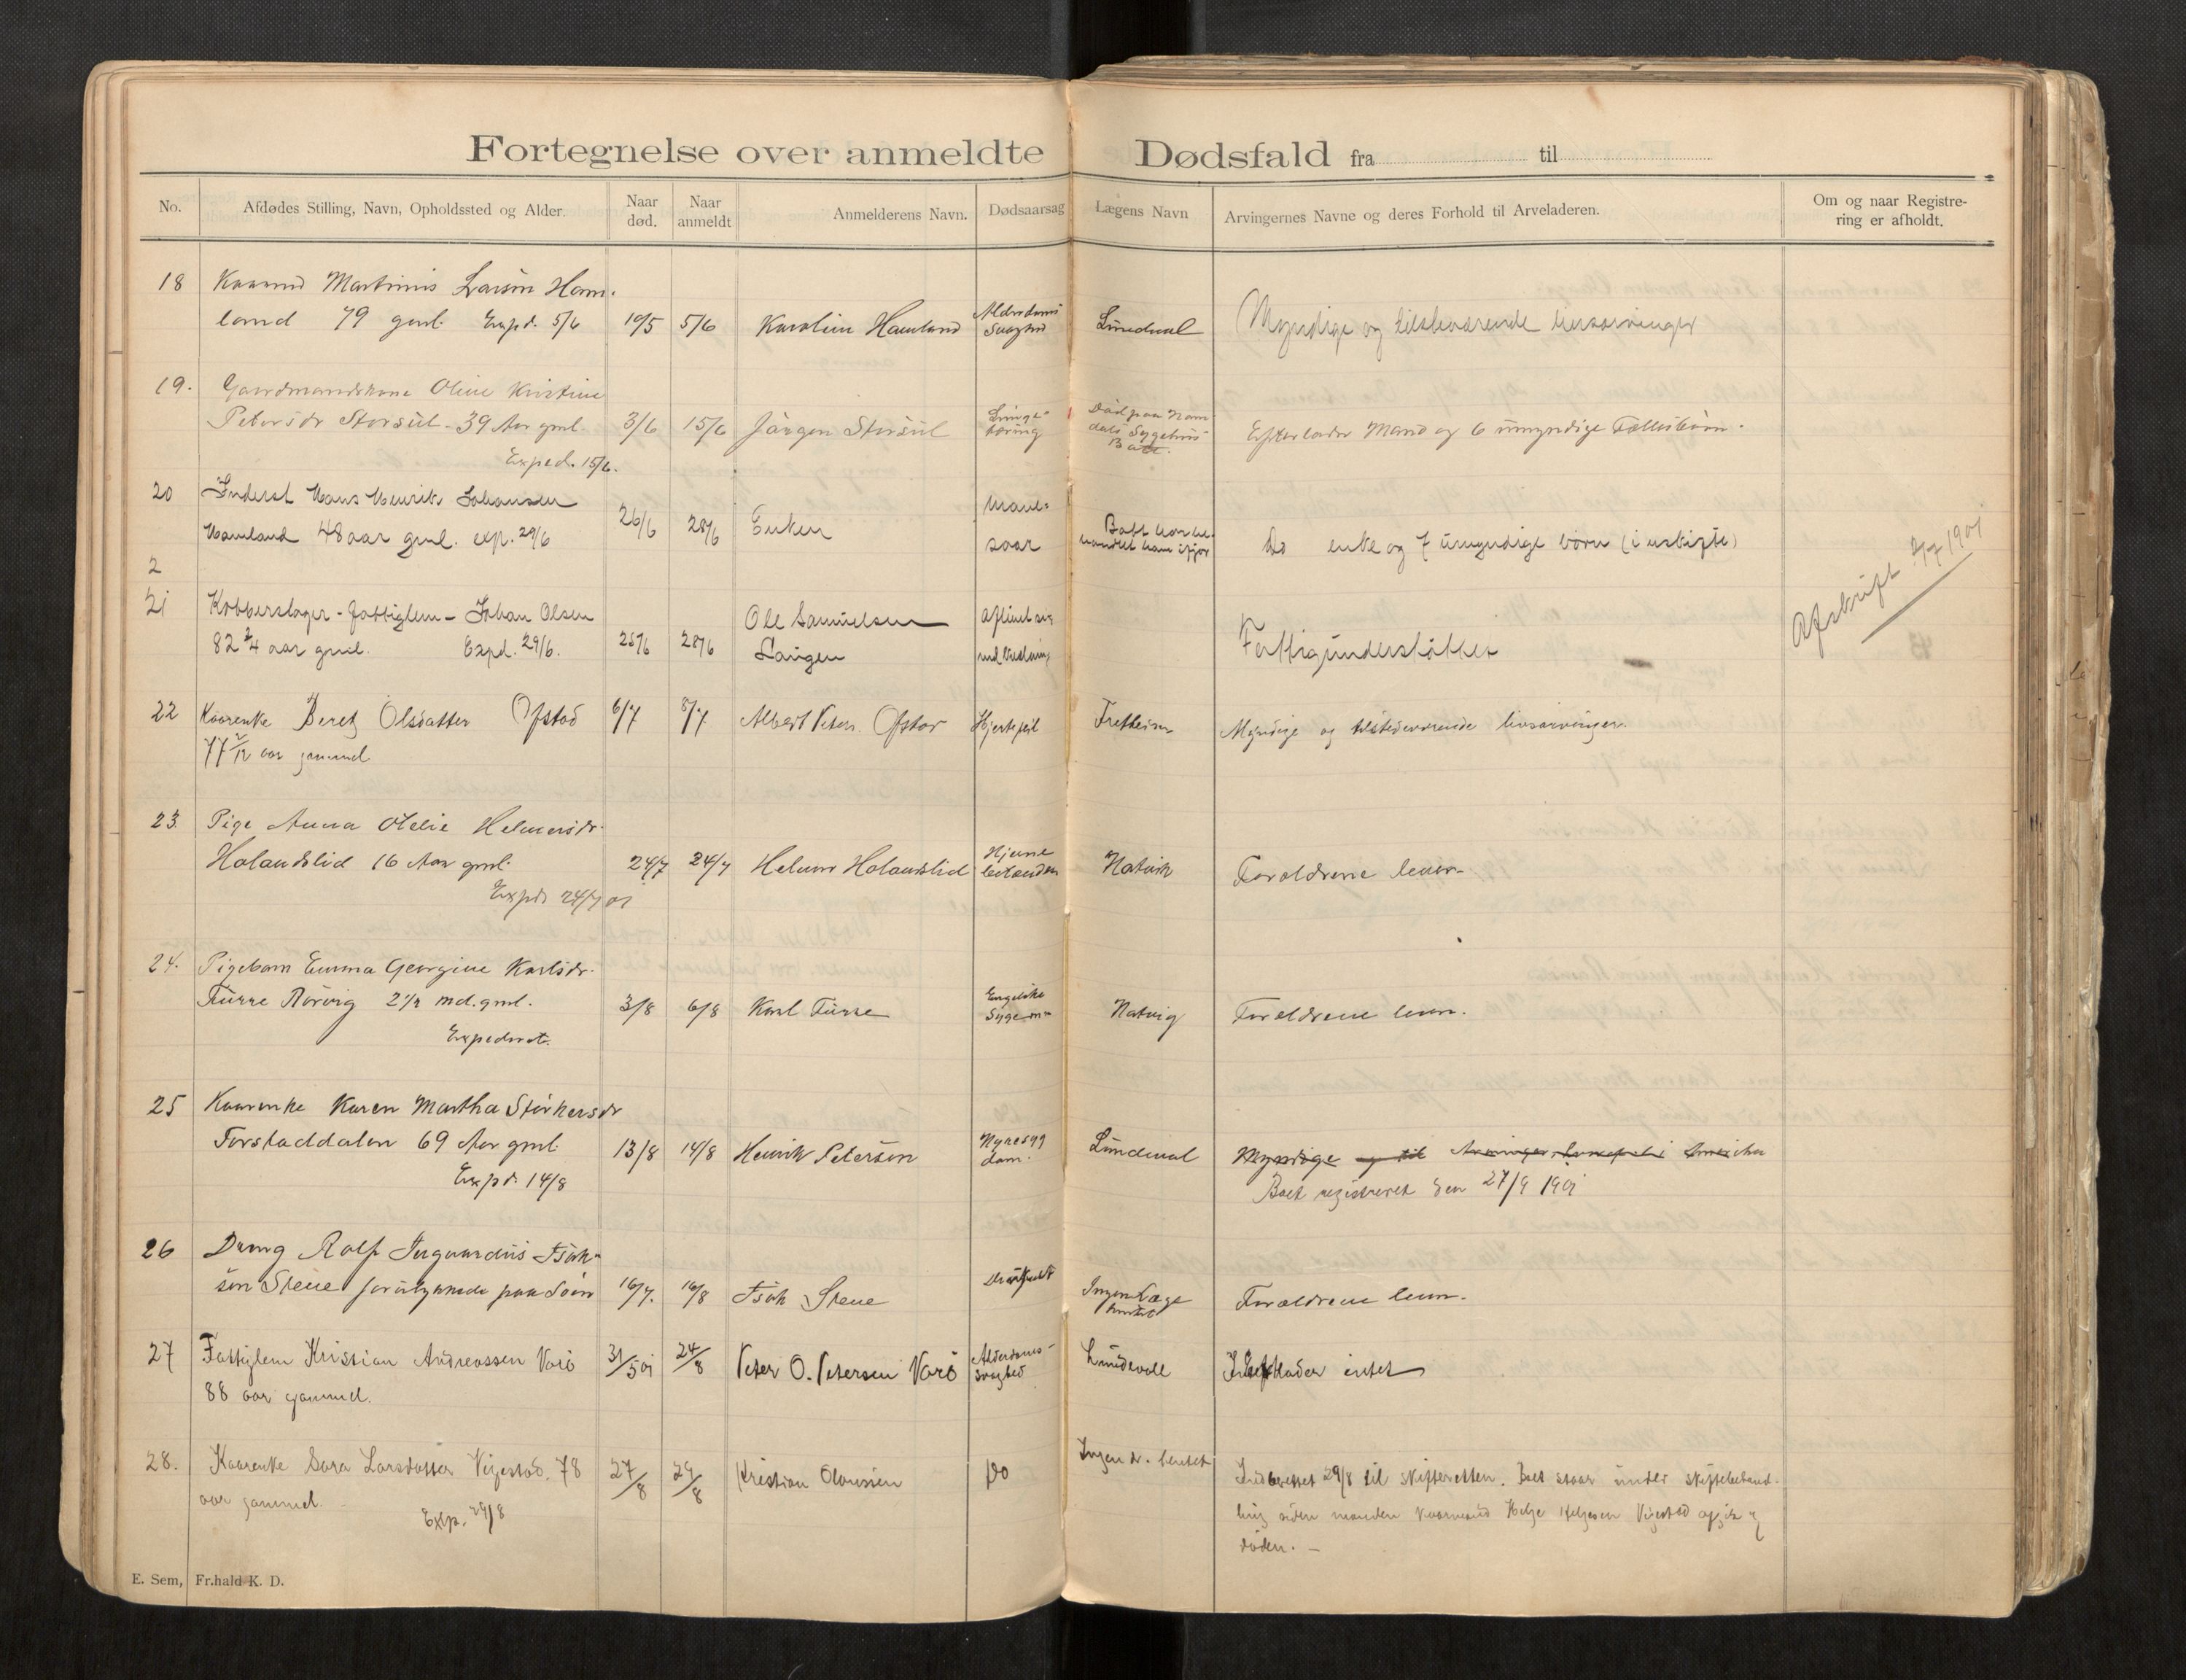 Fortegnelse over anmeldte Dødsfald fra til
No. Afdødes Stilling, Navn, Opholdssted og Alder. Naar død. Naar anmeldt Anmelderens Navn. Dødsaarsag Lægens Navn Arvingernes Navne og deres Forhold til Arveladeren. Om og naar Registrering er afholdt.
18 Kaarmd Martinus Larsen Ham-
land 79 gml. Exp d. 5/6 19/5 5/6 Karolin Hamland Alderdoms Svaghed Lundwal Myndige og tilstedværende livsarvinger
19. Gaardmandskone Oline Kristine
Petersdr Storsul - 39 Aar gml. 3/6 15/6 Jørgen Storsul Lunge- tæring Död paa Nam- dals Sygehus Efterlader Mand og 6 umyndige Fællesbørn.
Exped. 15/6.
20 Inderst Hans Henrik Johansen
Hamland 48 aar gml. exp. 29/6 26/6 28/6 Enken Mave- saar Do enke og 7 umyndige børn (i uskifte)
2
21 Kobberslager - fattiglem - Johan Olsen
82 3/4 aar gml. Expd. 29/6. 25/6 28/6 Ole Samuelsen Laugen Fattigunderstøttet
Afskrift 2/7 1901
22 Kaarenke Beret Olsdatter Ofstad 6/7 8/7 Albert Peter Ofstad Hjertefeil Fretheim Myndige og tilstedeværende livsarvinger.
77 2/12 aar gammel
23. Pige Anna Otelie Helmersdr.
Holandslid 16 Aar gml. 24/7 24/7 Helmer Holandslid Hjerne betænden Natvik Forældrene lever.
Expd 24/7 01
24. Pigebarn Emma Georgine Karlsdr.
Furre Rørvig 2 1/2 md. gml. 3/8 6/8 Karl Furre Engelske Syge Natvig Forældrene lever.
Expederet.
25 Kaarenke Karen Martha Størkersdr
Forstaddalen 69 Aar gml. 13/8 14/8 Henrik Petersen Nyresyg dom. Lundwal Myndige og til Arvinger Amerika
Expd. 14/8 Boet registreret den 27/9 1901
26 Dreng Rolf Ingvardus Isak-
sen Steue forulykkede paa Søen 16/7. 16/8 Isak Steue Druknet Ingen Læge hentet Forældrene lever.
27 Fattiglem Kristian Andreassen Varö 31/5 01 24/8 Peter O. Petersen Varö Alderdoms- svaghed Lundevall Efterlader intet
88 aar gammel.
28. Kaarenke Sara Larsdatter Vigestad. 78 27/8 29/8 Kristian Olaussen Do Ingen dr. hentet Indberettet 29/8 til skifteretten. Boet staar under skiftebehand-
aar gammel. ling siden manden Kaarmand Helge Helgesen Vigestad afgik v
Exp. 29/8 døden. -
E. Sem, Fr.hald K. D.